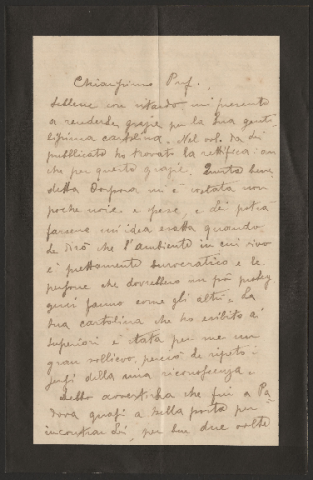 Chiarissimo Prof.
Sebbene con ritardo mi presento
a renderle grazie per la sua genti
lissima cartolina. Nel vol. da Lei
pubblicato ho trovato la rettifica: an
che per questo grazie. Questa bene
detta Porpora mi è costata non
poche noie e spese, e Lei potrà
farsene un'idea esatta quando
Le dirò che l'ambiente in cui vivo
è prettamente burocratico e le
persone che dovrebbero un pò proteg
gerci fanno come gli altri. La
sua cartolina che ho esibito ai
superiori è stata per me un
gran sollievo, perciò Le ripeto i
sensi della mia riconoscenza.
Debbo avvertirla che fui a Pa
dova quasi a bella posta per
incontrar Lei, per ben due volte